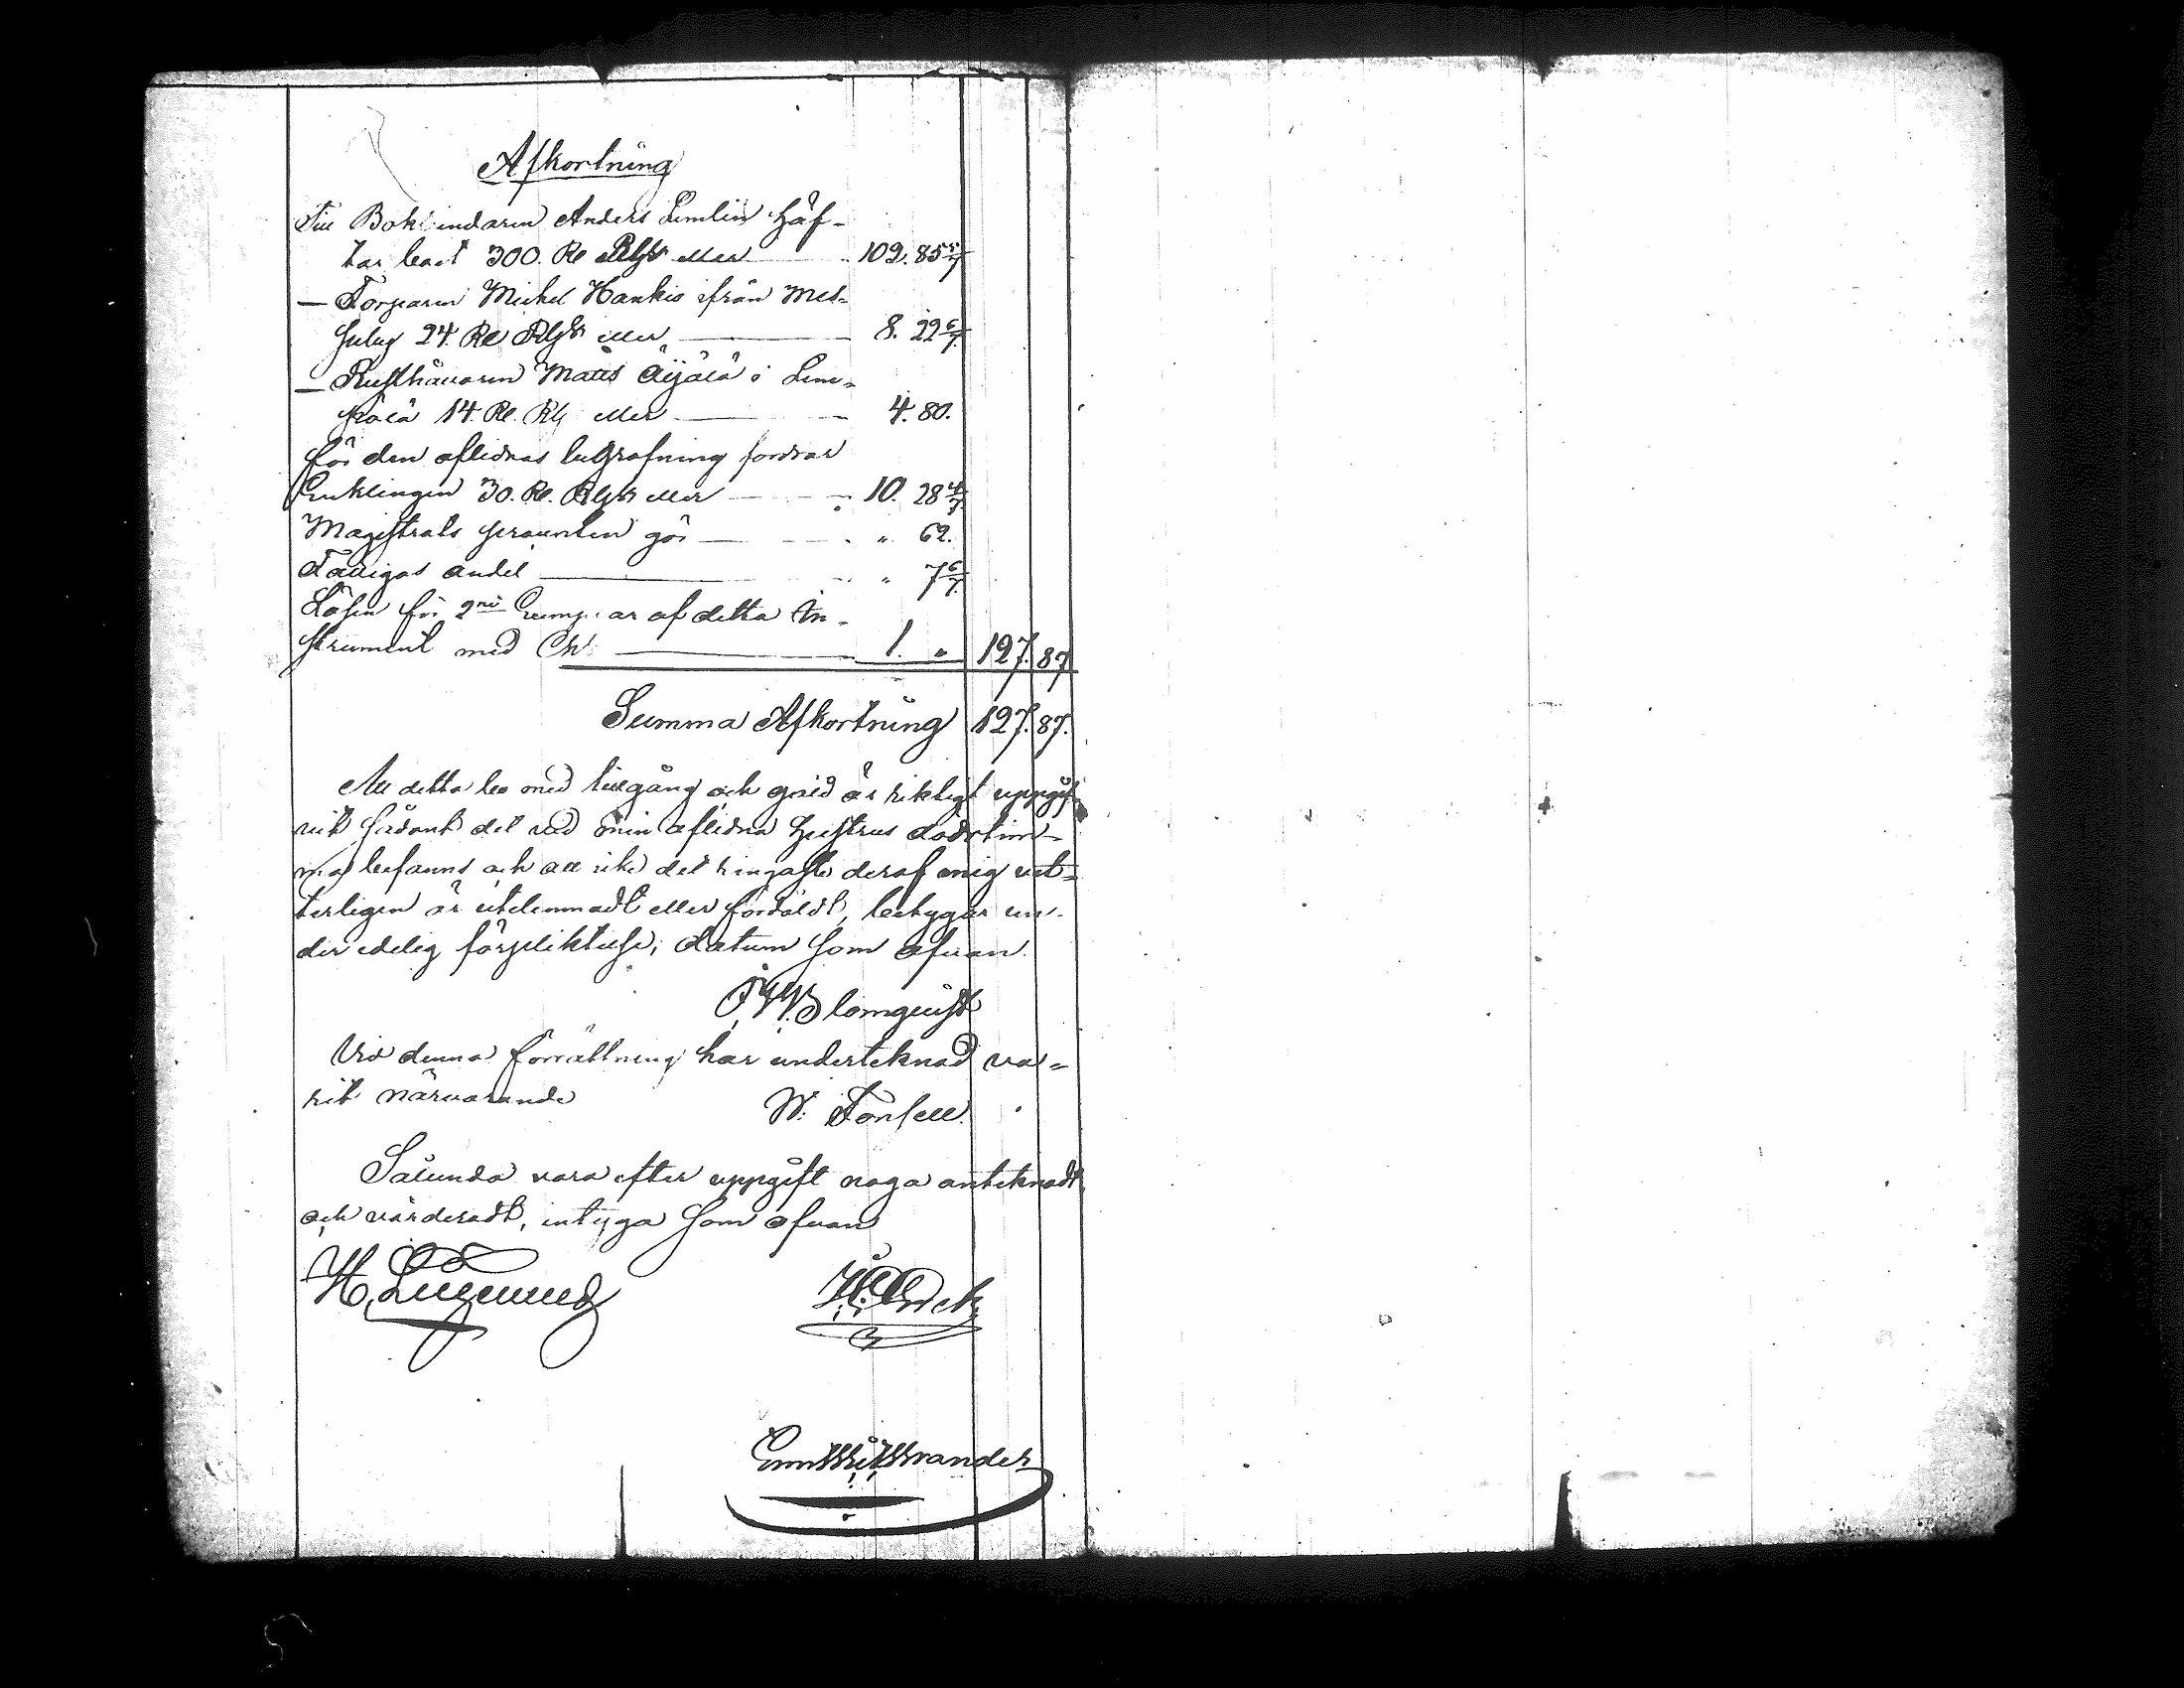 Afkortning
Till Bokbindaren Anders Limlin häf-
tar boet 300. Rd Rgs eller 102. 85 5/7
— Torparen Michel Hankis ifrån Mes-
suby 24. Rd Rgs eller 8. 22 6/7
— Rusthållaren Matts Äijälä i Lem-
14. Rd. Rgs eller 4. 80.
för den aflidnas begrafning fordrar
Enklingen 30. Rd. Rgs eller 10. 28 4/7
Magistrats gör " 62.
Fattigas andel " 7 6/7
Lösen för 2ne Exemplar af detta In-
strument med Ch: 1. " 127. 87
Summa Afkortning 127. 87.
All detta bo med tillgång och gäld är riktigt uppgif-
vit sådant det vid min aflidna Hustrus dödstim-
ma befanns och att icke det ringaste deraf mig vet-
terligen är utelemnadt eller fördöldt, betygar un-
der edelig förpliktelse; datum som ofvan.
Blomquist
Vid denna förrättning har undertecknad va-
rit närvarande W: Forsell.
Sålunda vara efter uppgift noga antecknadt
och värderadt, intyga som ofvan